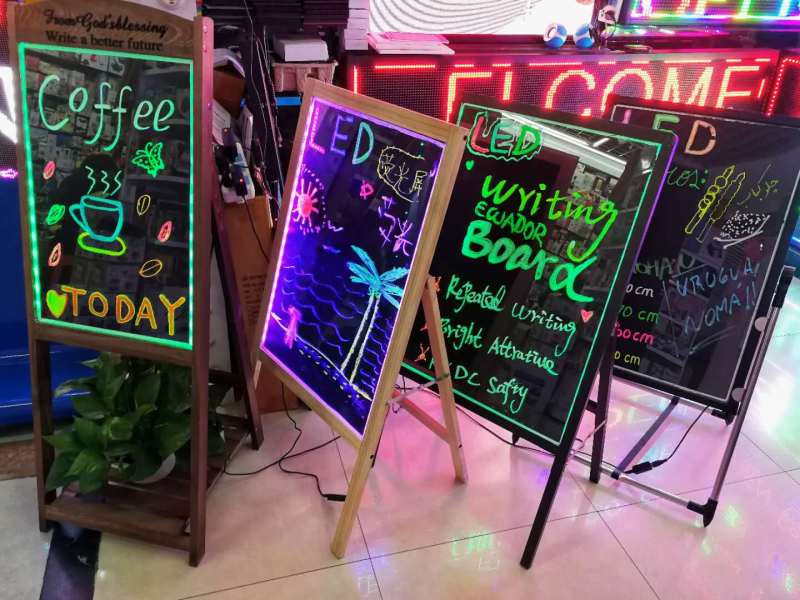 From God's blessing
Write a better future
Coffee
TODAY
ED
LED
Writing
ECUADOR
Board
Repeated Writing
Bright Attrative
DC Safty
ELCOME
LED
UROGUAI
NOMA!!
cm
70 cm
60 cm
cm